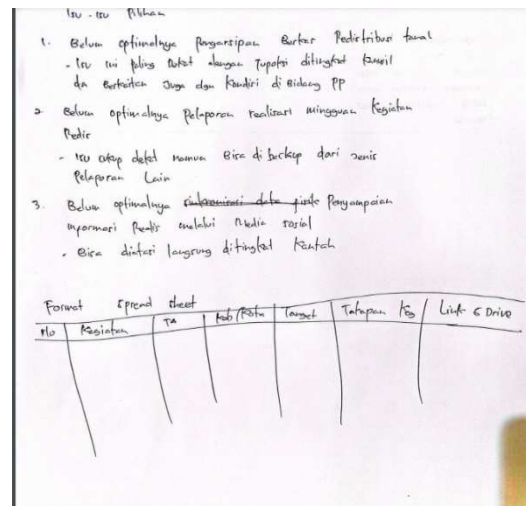 Isu - Isu Pilihan
1. Belum optimalnya Pengarsipan Berkas Redistribusi tanah
- Isu ini paling Dekat dengan Tupoksi ditingkat kanwil
dan Berkaitan Juga dgn Kondisi di Bidang PP
2 Belum optimalnya Pelaporan realisasi mingguan Kegiatan
Redis
- Isu cukup dekat namun Bisa di backup dari Jenis
Pelaporan Lain
3. Belum optimalnya sinkronisasi data Penyampaian
informasi Redis melalui Media sosial
- Bisa diatasi langsung ditingkat Kantah
Format Spread sheet
No Kegiatan TA Kab/Kota Target Tahapan Keg Link G Drive